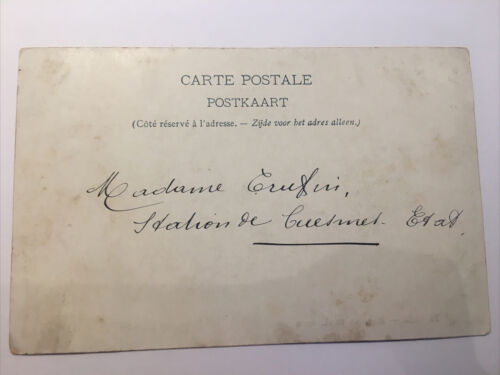 CARTE POSTALE
POSTKAART
(Côté réservé à l'adresse. — Zijde voor het adres alleen.)
Madame
Station de Cuesmes - Etat.